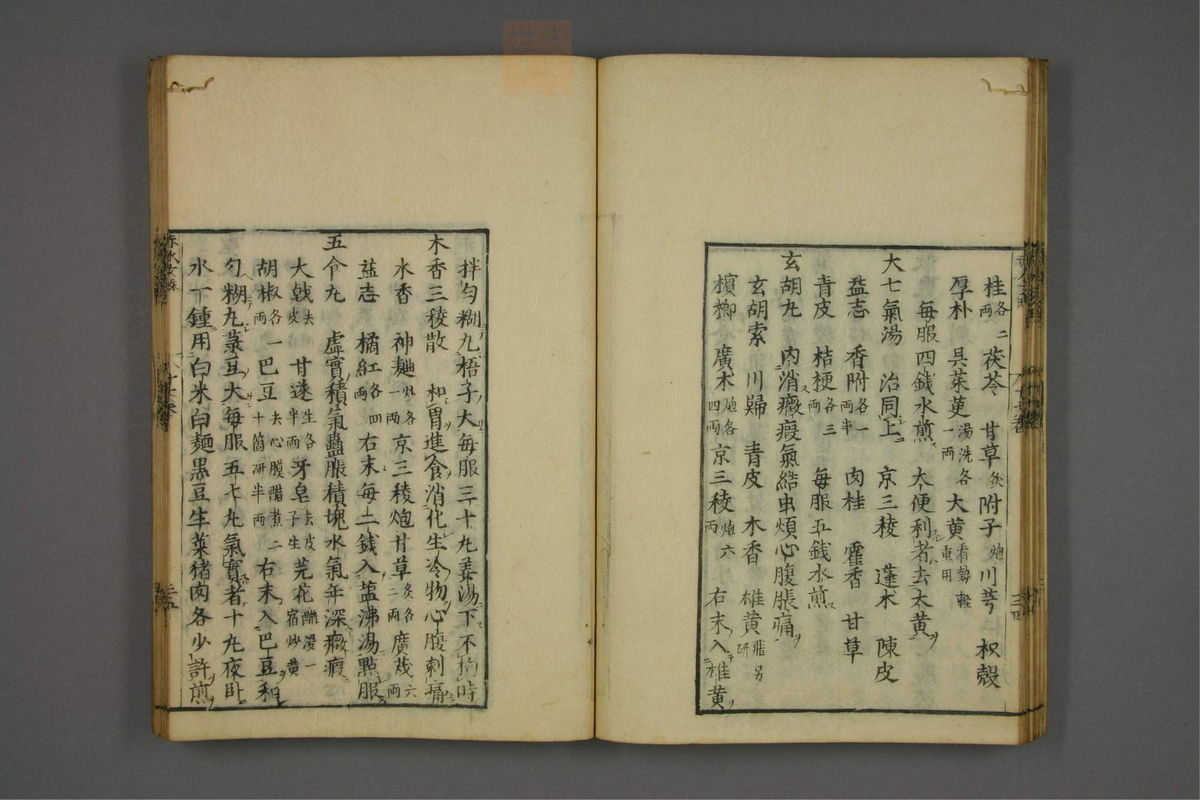 桂各二兩茯苓 甘草炙附子炮川芎 枳殼
厚朴 吳茱萸湯洗各一兩大黃看勢輕重用
每服四錢水煎 大便利者去大黃
大七氣湯 治同上 京三稜 蓬朮 陳皮
益志 香附各一兩半 肉桂 藿香 甘草
青皮 桔梗各三兩 每服五錢水煎
玄胡丸 內消癥瘕氣結虫煩心腹脹痛
玄胡索 川歸 青皮 木香 雄黃飛另研
檳榔 廣朮炮各四兩京三稜炮六兩 右末入雄黃
拌勻糊丸梧子大每服三十丸姜湯下不拘時
木香三稜散 和胃進食消化生冷物心腹刺痛
木香 神麯炒各一兩京三稜炮甘草炙各二兩廣茂六兩
益志 橘紅各四兩右末每二錢入盐沸湯點服
五令丸 虛實積氣蠱脹積塊水氣年深癥瘕
大戟去皮 甘遂生各半兩牙皂去皮子生芫花醋浸一宿炒黃
胡椒各一兩巴豆去心膜醋煮二十箇研半兩右末入巴豆和
勻糊丸菉豆大每服五七丸氣實者十丸夜臥
水一鍾用白米白麵黑豆生菜猪肉各少許煎
赤水玄珠